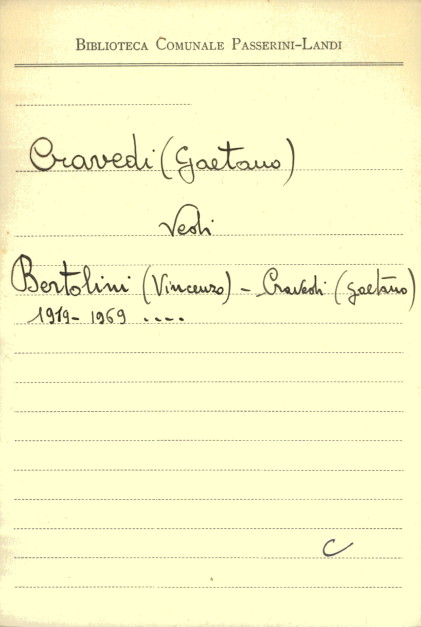 BIBLIOTECA COMUNALE PASSERINI-LANDI
Cravedi (Gaetano)
Vedi
Bertolini (Vincenzo) - Cravedi (Gaetano)
1919-1969 ....
C